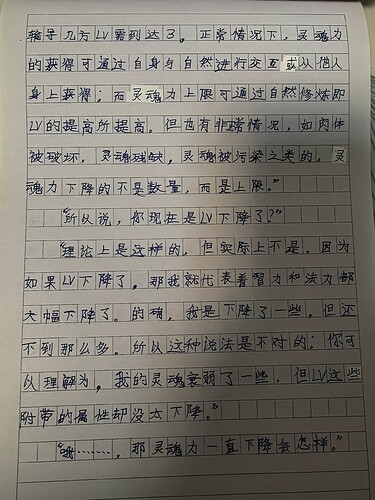 指导几方LV需到达3。正常情况下，灵魂力
的获得可通过自身与自然进行交互或从他人
身上获得；而灵魂力上限可通过自然修炼即
LV的提高所提高。但也有非常情况，如肉体
被破坏，灵魂残缺，灵魂被污染之类的，灵
魂力下降的不是数量，而是上限。”
“所以说，你现在是LV下降了？”
“理论上是这样的，但实际上不是。因为
如果LV下降了，那我就代表着智力和法力都
大幅下降了。的确，我是下降了一些，但还
不到那么多。所以这种说法是不对的；你可
以理解为，我的灵魂衰弱了一些，但LV这些
附带的属性却没太下降。”
“哦……，那灵魂力一直下降会怎样。”